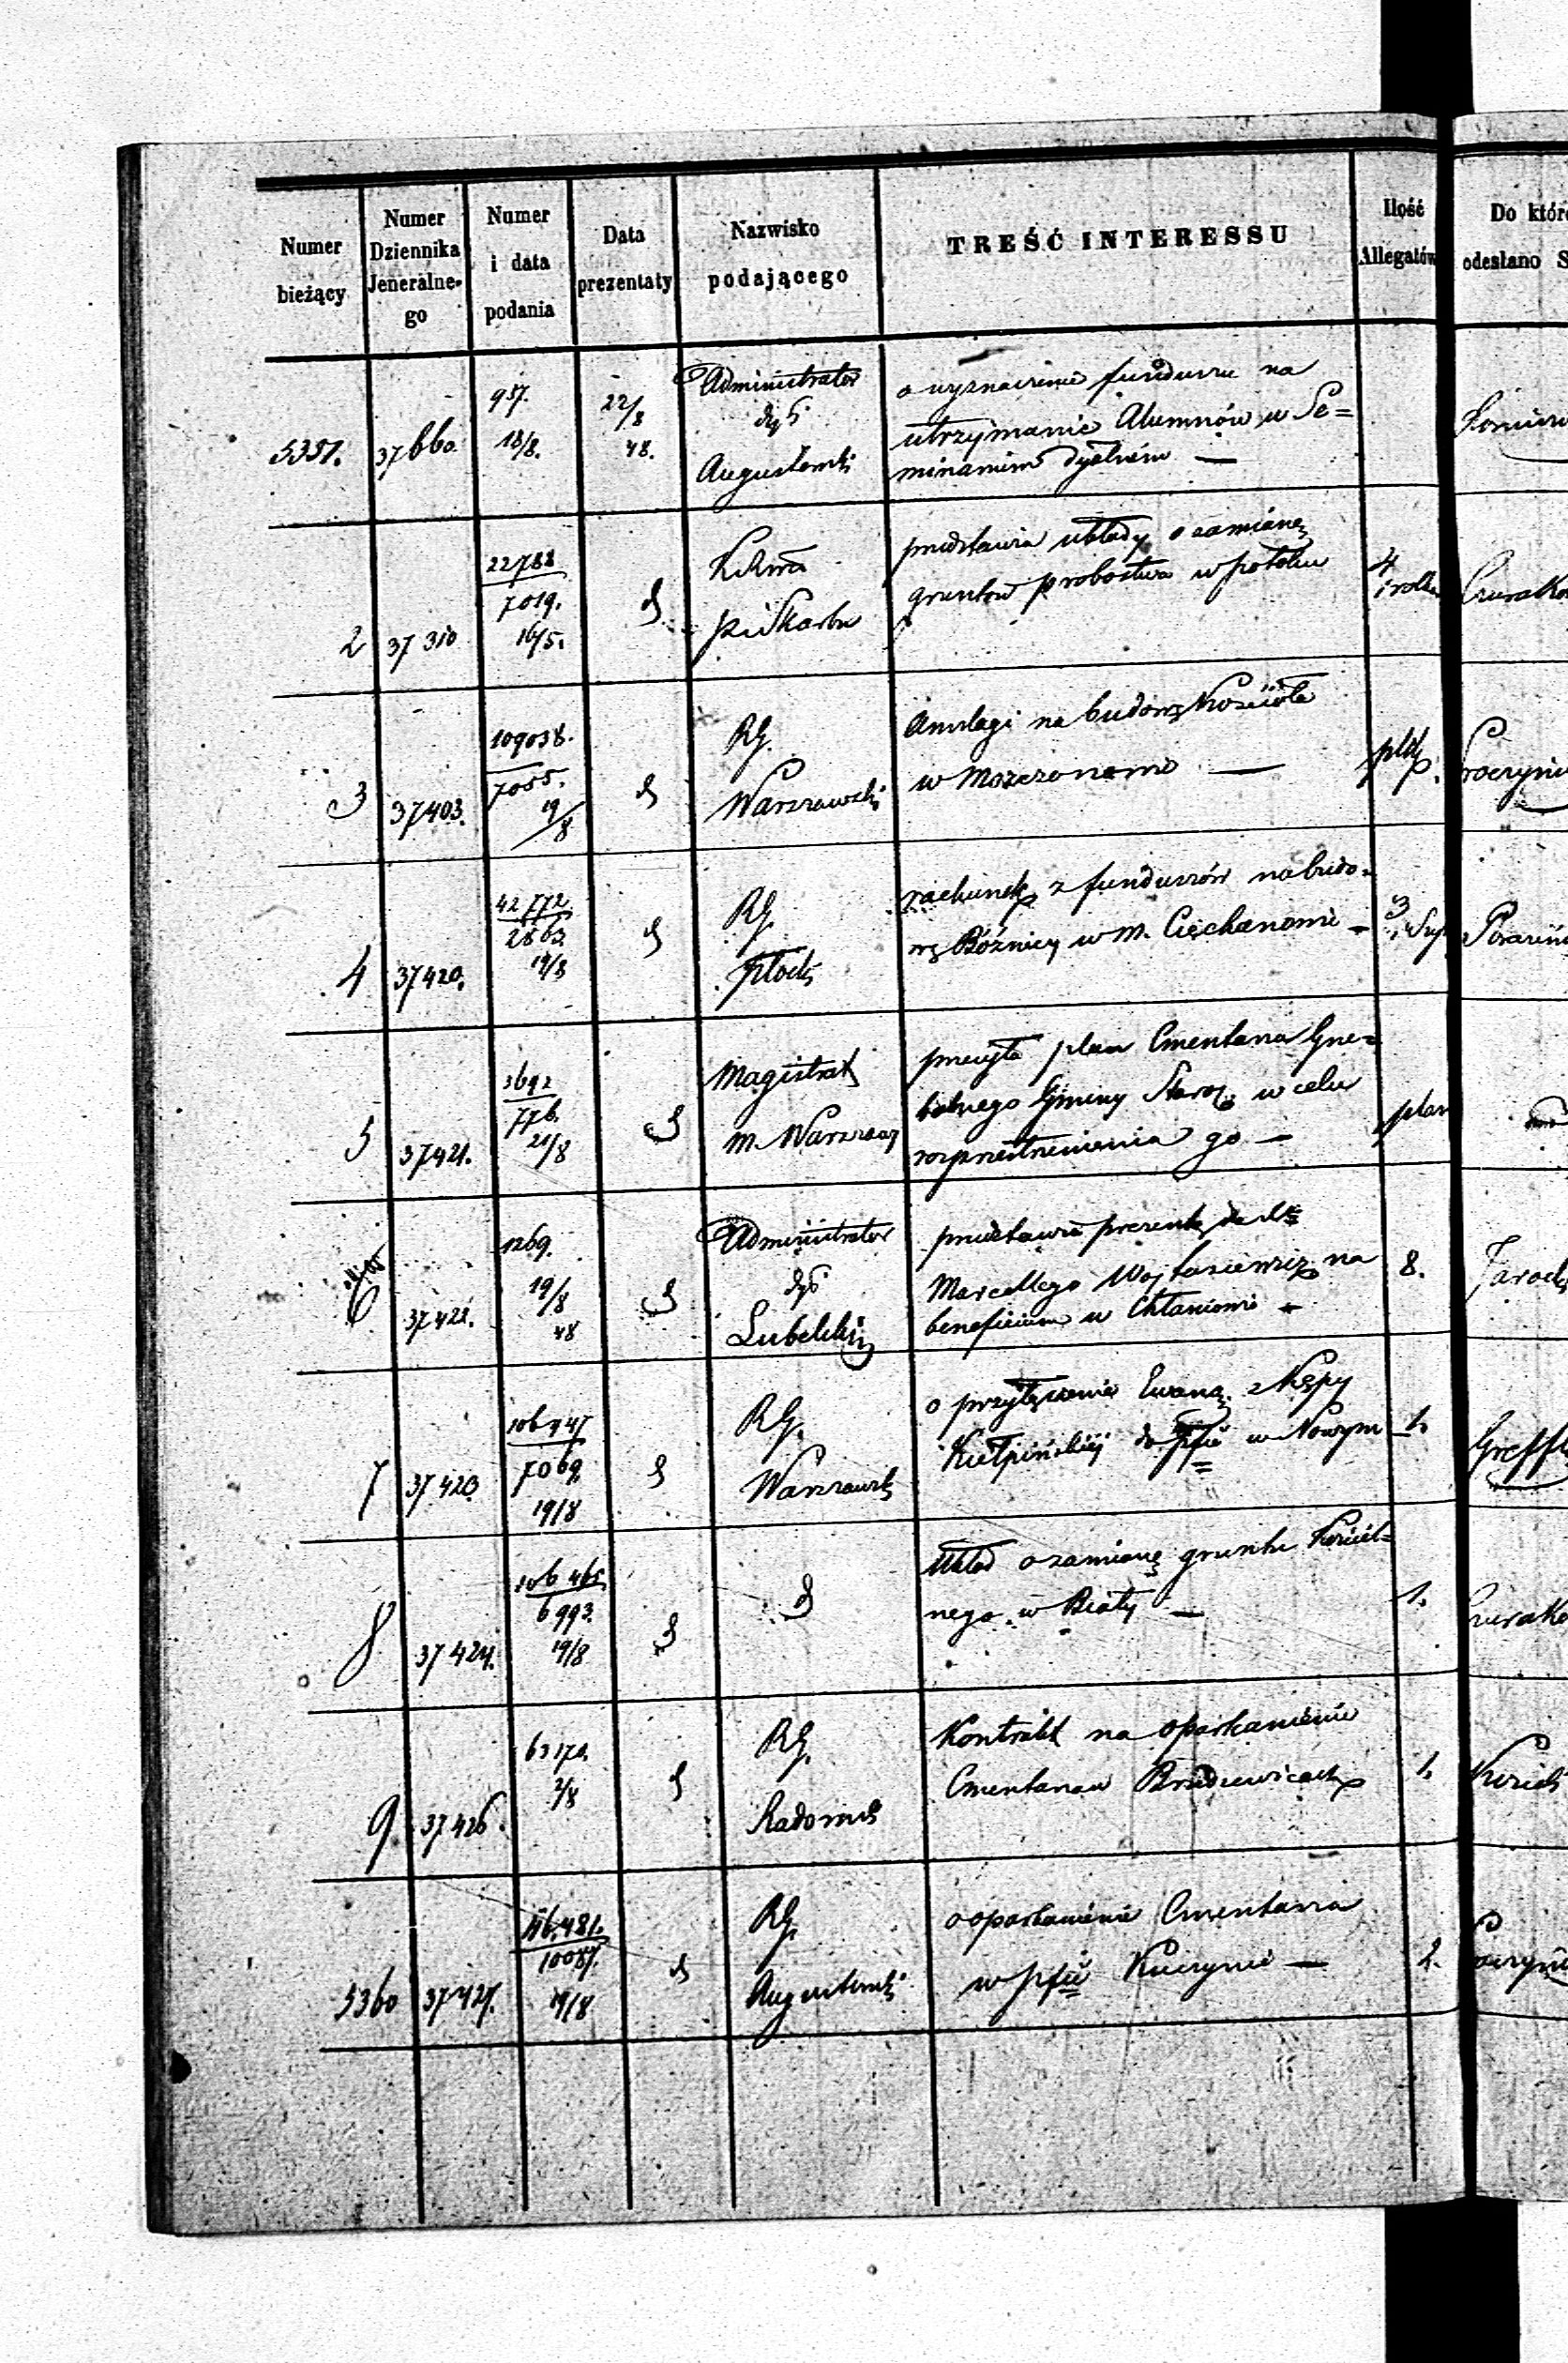 Numer
bieżący
Numer
Dziennika
Jeneralne-
go
Numer
i data
podania
Data
prezentaty
Nazwisko
podającego
TREŚĆ INTERESSU
Ilość
Allegatów
Do któr
odesłano S
5351. 37660. 957.
18/8.
22/8
48.
Administrator
dyi
Augustowski
o wyznaczenie funduszu na
utrzymanie Alumnów w Se=
minarium dyelnem —
2 37310 22788
7019.
16/5.
d
przedstawia układy o zamianę
gruntów probostwa w Potoku
4
3 37403. 109038.
7055.
19/8
d
RG.
Warszawski
Anszlagi na budowę Kościoła
w Mszczonowie —
4 37420. 42772
2863
19/8
d
RG.
Płocki
rachunek z funduszów na budo-
wę Bóżnicy w m. Ciechanowie —
3
5 37421. 3692
776.
21/8
d
Magistrat
m. Warszawy
przesyła plan Cmentarza Grze=
balnego Gminy Staroz. w celu
rozprzestrzenienia go —
plan
6 37422. 1269.
19/8
48
d
Administrator
dyi
Lubelskiej
przedstawia prezentę dla
Marcellego Wojtasiewicza na
beneficium w Chłaniowie —
8.
7 37423 106947
7069.
19/8
d
RG.
Warszawski
o przyłączenie Ewang. z Kępy
Kiełpińskiej do pfii w Nowym
1.
8 37424. 106465
6993.
19/8
d
d
Układ o zamianę gruntu Kościel=
nego w Biały —
1.
9 37426. 63170.
2/8
d
RG.
Radomski
Kontrakt na oparkanienie
Cmentarza w Brudzewicach
1.
5360 37427. 116,481.
10087.
19/8
d
RG.
Augustowski
o oparkanienie Cmentarza
w pfii Kuczynie —
2.